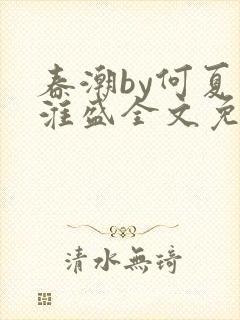 春潮by何夏
淮盛全文免
清水無琦